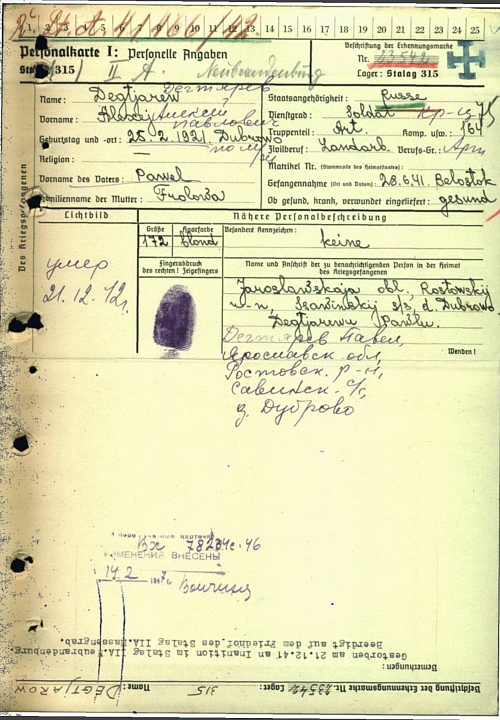 1 2 3 4 5 6 7 8 9 10 11 12 13 14 15 16 17 18 19 20 21 22 23 24 25
Personalkarte I: Personelle Angaben
315) II A. Neubrandenburg
Beschriftung der Erkennungsmarke
Nr. 23542
Lager: Stalag 315
Des Kriegsgefangenen
Name: Degtjarew Дегтярев
Vorname: Alexej Алексей Павлович
Geburtstag und -ort: 25.2.1921 Dubrowo
Religion: —
Vorname des Vaters: Pawel
Familienname der Mutter: Frolowa
Staatsangehörigkeit: Russe
Dienstgrad: Soldat кр-ц
Truppenteil: Art. Komp. usw.: 164
Zivilberuf: Landarb. Berufs-Gr.:
Matrikel Nr. (Stammrolle des Heimatstaates):
Gefangennahme (Ort und Datum): 28.6.41. Belostok
Ob gesund, krank, verwundet eingeliefert: gesund
75
Lichtbild
Nähere Personalbeschreibung
Größe Haarfarbe Besondere Kennzeichen:
172 blond keine
умер
21.12.
Fingerabdruck
des rechten! Zeigefingers
Name und Anschrift der zu benachrichtigenden Person in der Heimat
des Kriegsgefangenen
Jaroslawskaja obl. Rostowskij
s/s, d. Dubrowo
Degtjarewu Pawlu.
Дегтярев Павел,
Ярославск. обл,
Ростовск. р-н,
Савинск. с/с,
д. Дуброво
Wenden!
Вх 78234с-46
ИЗМЕНЕНИЯ ВНЕСЕНЫ
14.2 194
Beschriftung der Erkennungsmarke Nr. 23542 Lager: 315 Name: DEGTJAROW
Bemerkungen:
Gestorben am 21.12.41 an Inanition im Stalag IIA. Neubrandenburg.
Beerdigt auf dem Friedhof des Stalag IIA. Massengrab.